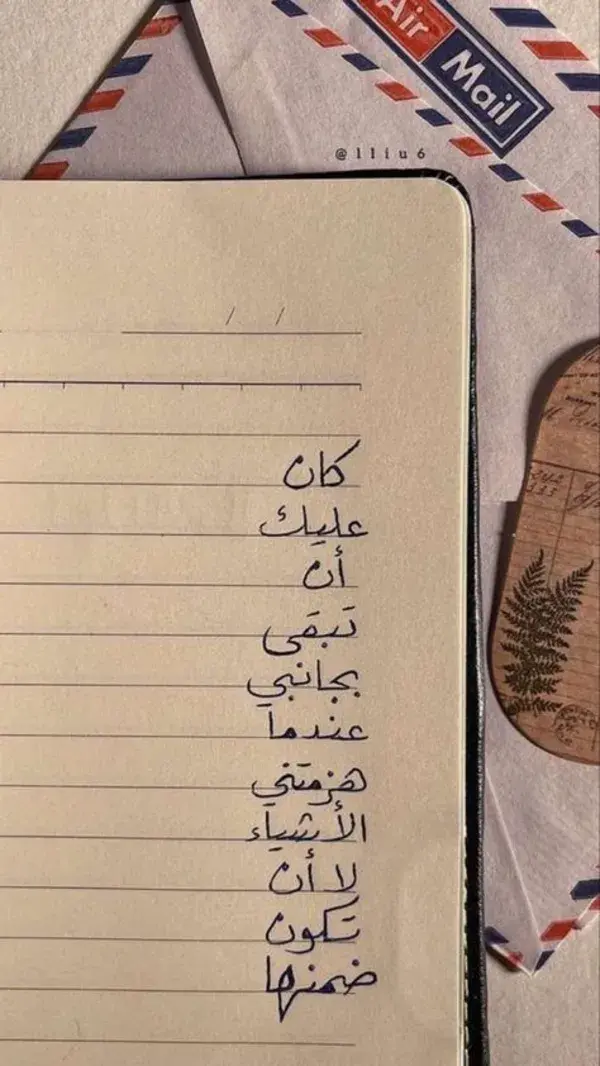 Air
Mail
@lliu6
/ /
كان
عليك
أن
تبقى
بجانبي
عندما
هزمتني
الأشياء
لا أن
تكون
ضمنها